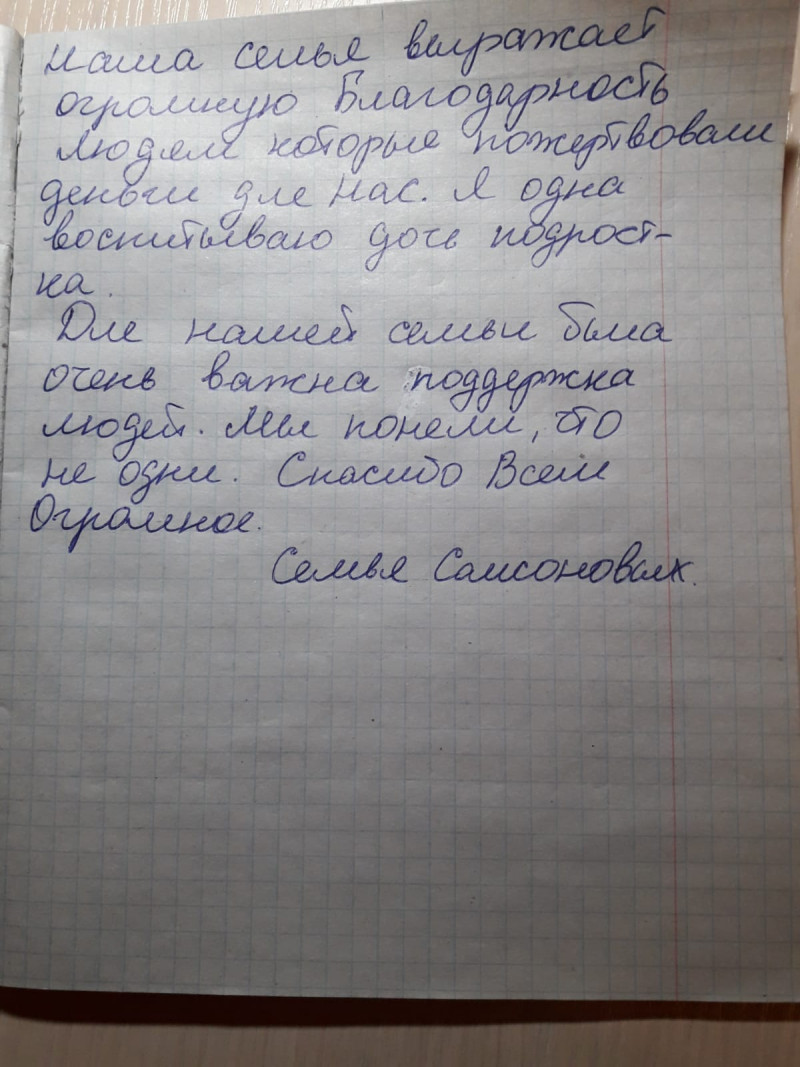 Наша семья выражает
огромную Благодарность
людям которые пожертвовали
деньги для нас. Я одна
воспитываю дочь подрост-
ка.
Для нашей семьи была
очень важна поддержка
людей. Мы поняли, что
не одни. Спасибо Всем
Огромное.
Семья Самсоновых.